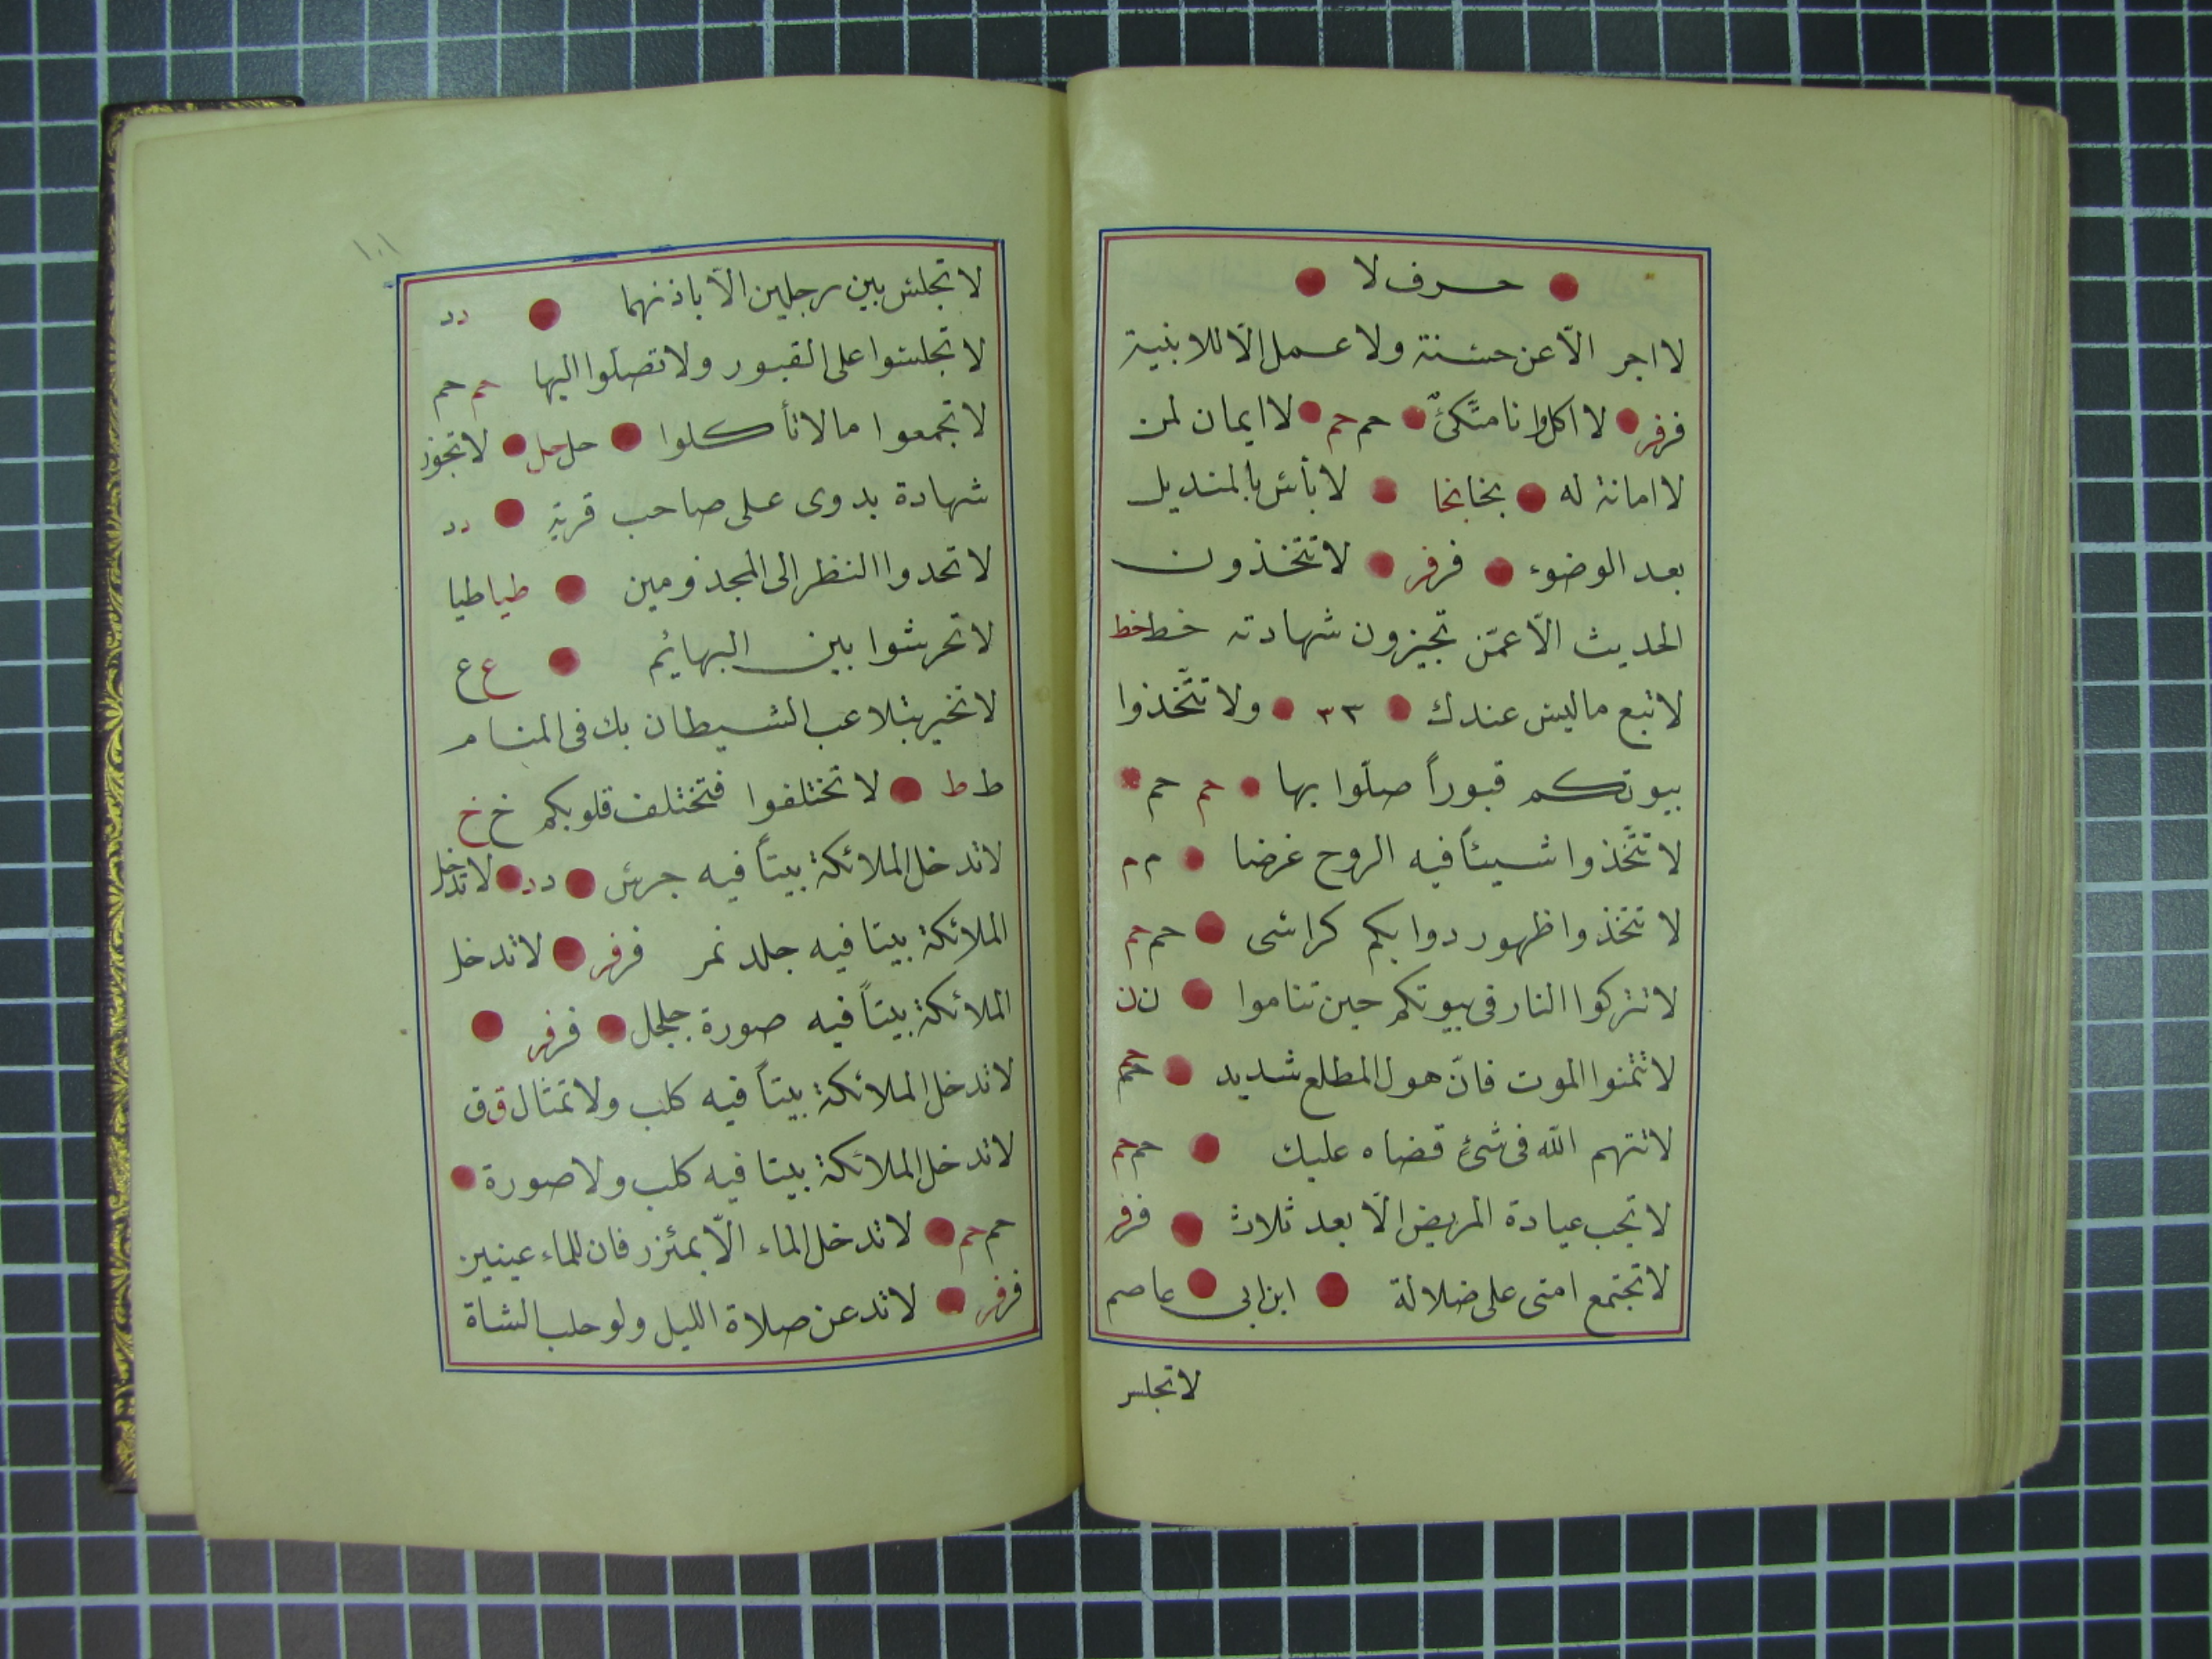 حرف لا
لا اجر الّا عن حسنة ولا عمل الّا للابنية
فر فر لا اكل وانا متّكئٌ حم حم لا ايمان لمن
لا امانة له بخا بخا لا بأس بالمنديل
بعد الوضوء فر فر لا تتخذون
الحديث الّا عمّن تجيزون شهادته خط خط
لا تبع ما ليس عندك ٣ ٣ ولا تتّخذوا
بيوتكم قبوراً صلّوا بها حم حم
لا تتّخذوا شيئاً فيه الروح غرضا م م
لا تتخذوا ظهور دوابكم كراسى حم حم
لا تتركوا النار فى بيوتكم حين تناموا ن ن
لا تتمنوا الموت فانّ هول المطلع شديد حم حم
لا تتهم الله فى شئ قضاه عليك حم حم
لا تجب عيادة المريض الّا بعد ثلاث فر فر
لا تجتمع امتى على ضلالة ابن ابى عاصم
لا تجلس
١٠١
لا تجلس بين رجلين الّا باذنهما د د
لا تجلسوا على القبور ولا تصلّوا اليها حم حم
لا تجمعوا ما لا تأكلوا حل حل لا تجوز
شهادة بدوى على صاحب قرية د د
لا تحدوا النظر الى المجذومين طيا طيا
لا تحرشوا بين البهائم ع ع
لا تخبر بتلاعب الشيطان بك فى المنام
ط ط لا تختلفوا فتختلف قلوبكم خ خ
لا تدخل الملائكة بيتاً فيه جرس د د لا تدخل
الملائكة بيتا فيه جلد نمر فر فر لا تدخل
الملائكة بيتاً فيه صورة جلجل فر فر
لا تدخل الملائكة بيتاً فيه كلب ولا تمثال ق ق
لا تدخل الملائكة بيتا فيه كلب ولا صورة
حم حم لا تدخل الماء الّا بمئزر فان للماء عينين
فر فر لا تدعن صلاة الليل ولو حلب الشاة